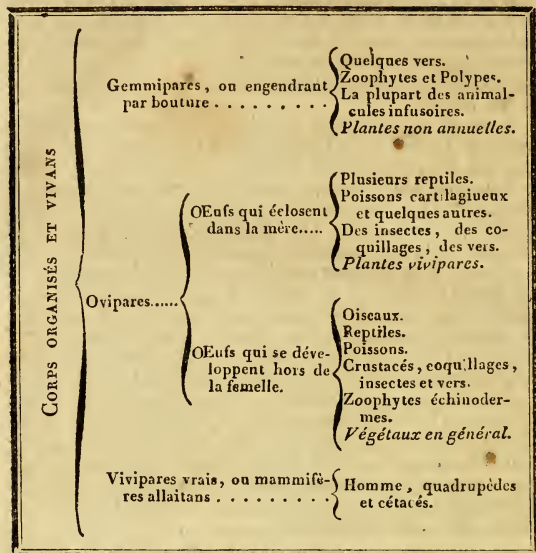 CORPS ORGANISÉS ET VIVANS
Gemmipares, ou engendrant
par bouture . . . . . . . .
Quelques vers.
Zoophytes et Polypes.
La plupart des animal-
cules infusoires.
Plantes non annuelles.
Ovipares......
OEufs qui éclosent
dans la mère.....
Plusieurs reptiles.
Poissons cartilagiueux
et quelques autres.
Des insectes, des co-
quillages, des vers.
Plantes vivipares.
OEufs qui se déve-
loppent hors de
la femelle.
Oiseaux.
Reptiles.
Poissons.
Crustacés, coquillages,
insectes et vers.
Zoophytes échinoder-
mes.
Végétaux en général.
Vivipares vrais, ou mammifè-
res allaitans . . . . . . . .
Homme, quadrupèdes
et cétacés.